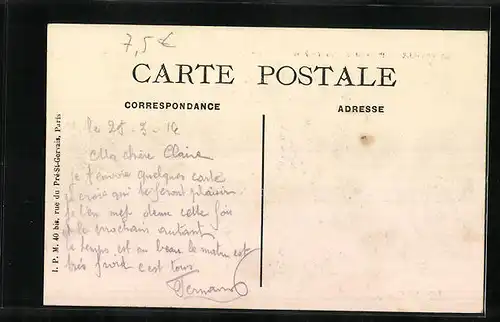 7,5€
CARTE POSTALE
CORRESPONDANCE
ADRESSE
I. P. M. 40 bis, rue du Pré-St-Gervais, Paris
Le 28 - 3 - 14
Ma chère Claire
Je t'envoie quelques carte
je crois qui te feront plaisir
Je t'en met deux cette fois
et le prochain autant
le temps est au beau le matin est
très froid c'est tous